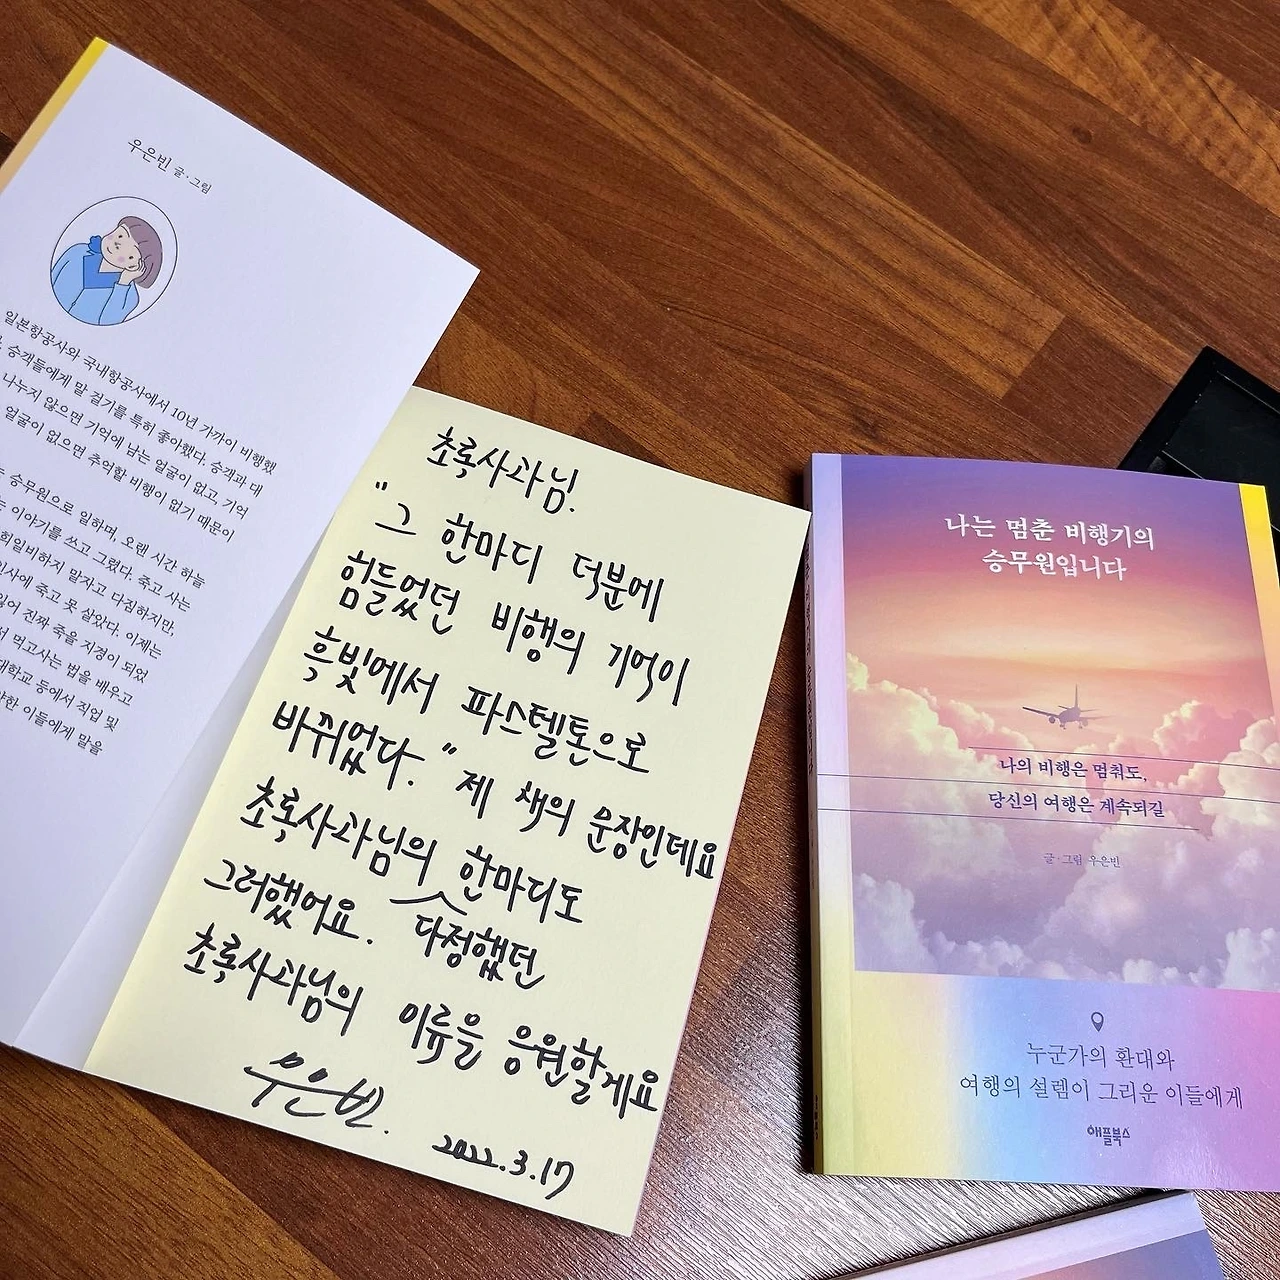 우은빈 글·그림
일본항공사와 국내항공사에서 10년 가까이 비행했
승객들에게 말 걸기를 특히 좋아했다. 승객과 대
나누지 않으면 기억에 남는 얼굴이 없고, 기억
얼굴이 없으면 추억할 비행이 없기 때문이
승무원으로 일하며, 오랜 시간 하늘
이야기를 쓰고 그렸다. 죽고 사는
희일비하지 말자고 다짐하지만,
인사에 죽고 못 살았다. 이제는
잃어 진짜 죽을 지경이 되었
서 먹고사는 법을 배우고
대학교 등에서 직업 및
양한 이들에게 말을
초록사과님.
"그 한마디 덕분에
힘들었던 비행의 기억이
흑빛에서 파스텔톤으로
바뀌었다." 제 책의 문장인데요
초록사과님의 한마디도
그러했어요. 다정했던
초록사과님의 이륙을 응원할게요
우은빈.
2022.3.17
나는 멈춘 비행기의
승무원입니다
나의 비행은 멈춰도,
당신의 여행은 계속되길
글·그림 우은빈
누군가의 환대와
여행의 설렘이 그리운 이들에게
애플북스